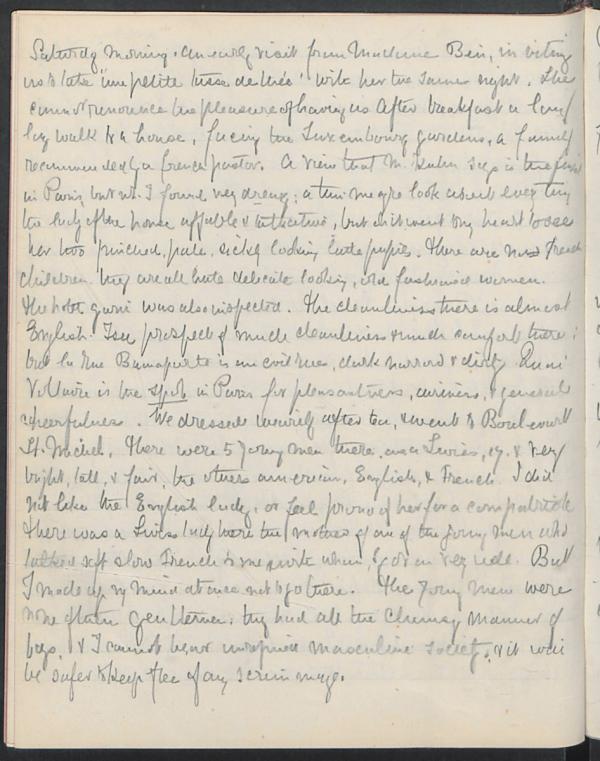 Saturday morning. An early visit from Madame Bein, inviting
us to take "une petite tasse de thé" with her the same night. She
cannot renounce the pleasure of having us. After breakfast a long
walk to a house, facing the Luxembourg gardens, a family
recommended by a french pastor. A view that M. says is the finest
in Paris, but wh. I found very dreary; a thin meagre look about every thing
the lady of the house affable & talkative, but it went to my heart to see
her two pinched, pale, sickly looking little pupils. There are no french
children. they are all little delicate looking, old fashioned women.
The hotel garni was also inspected. The cleanliness there is almost
English. I see prospect of much cleanliness & much comfort there:
but la Rue Bonaparte is an evil rue, dark narrow & dirty. Quai
Voltaire is the spot in Paris for pleasantness, airiness, & general
cheerfulness. We dressed ourselves after tea, & went to Boulevard
St. Michel. There were 5 young men there. one a Swiss, 19. & very
bright, tall, & fair, the others american, English, & French. I did
not like the English lady, or feel proud of her for a compatriote
There was a Swiss lady there the mother of one of the young men who
talked soft slow French to me quite when I got on very well. But
I made up my mind at once not to go there. The young men were
none of them gentlemen. they had all the clumsy manner of
boys, & I cannot bear unrefined masculine society, & it will
be safer to keep free of any scrimmage.